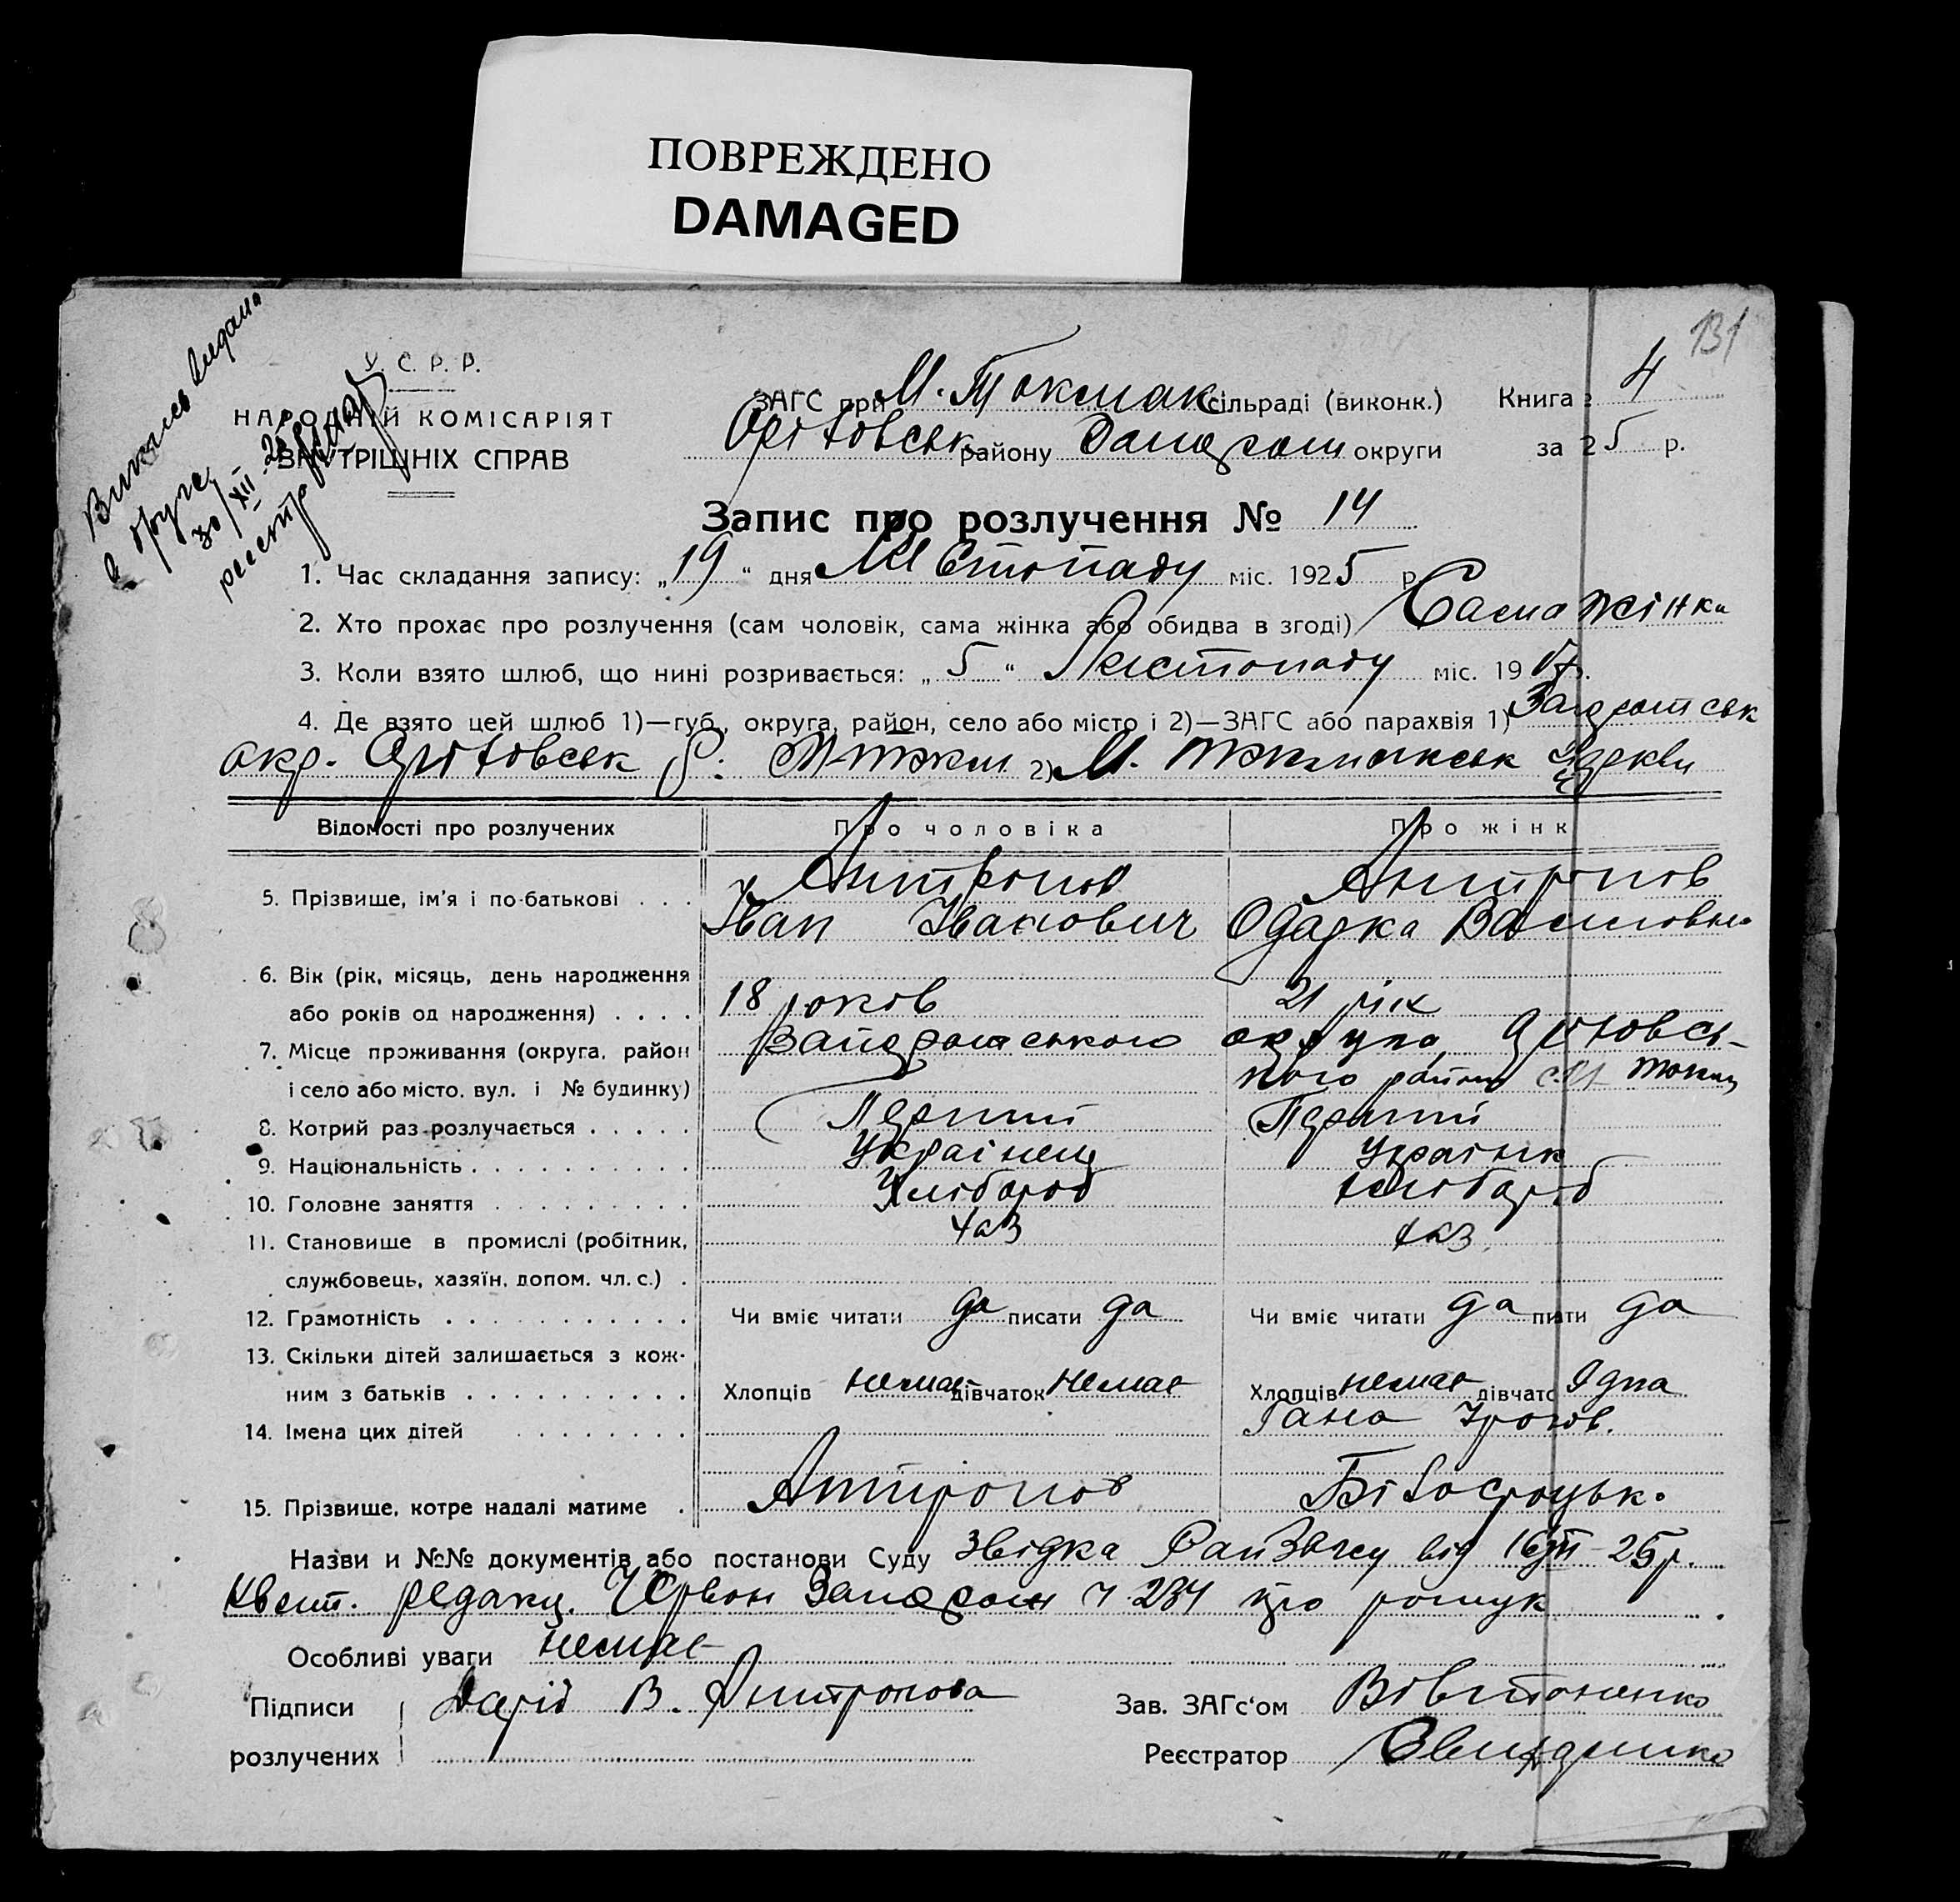 ПОВРЕЖДЕНО
DAMAGED
131
Випись видана
30/XII-28
У. С. Р. Р.
НАРОДНІЙ КОМІСАРІЯТ
ВНУТРІШНІХ СПРАВ
ЗАГС при М. Токмак сільраді (виконк.) Книга 4
Оріховськ району Запорож округи за 25 р.
Запис про розлучення № 14
1. Час складання запису: „19“ дня Листопаду міс. 1925 р
2. Хто прохає про розлучення (сам чоловік, сама жінка або обидва в згоді) Сама жінка
3. Коли взято шлюб, що нині розривається: „5“ Листопаду міс. 1917 р.
4. Де взято цей шлюб 1)—губ., округа, район, село або місто і 2)—ЗАГС або парахвія 1)
окр. Оріховськ р. 2) М. Токмакськ Церкви
Відомості про розлучених Про чоловіка Про жінк
5. Прізвище, ім'я і по-батькові . . . Антропов Антропов
Іван Іванович Одарка Василовна
6. Вік (рік, місяць, день народження
або років од народження) . . . . 18 років 21 рік
7. Місце проживання (округа, район Запорожського округа Оріховсь-
і село або місто, вул. і № будинку) кого району с. М Токмак
8. Котрий раз розлучається . . . . . Перший Перший
9. Національність . . . . . . . . . . Українець Українк
10. Головне заняття . . . . . . . . . Хлібороб Хлібороб
11. Становище в промислі (робітник, хаз хаз
службовець, хазяїн, допом. чл. с.) .
12. Грамотність . . . . . . . . . . . Чи вміє читати да писати да Чи вміє читати да писати да
13. Скільки дітей залишається з кож-
ним з батьків . . . . . . . . . . Хлопців немає дівчаток немає Хлопців немає дівчато Одна
14. Імена цих дітей . . . . . . . . Гана
15. Прізвище, котре надалі матиме . Антропов
Назви и №№ документів або постанови Суду Звідка РайЗагсу від 25 р.
Квит. редакц. Червон Запорож ч 234 про рошук
Особливі уваги немає
Підписи Дарія В. Антропова Зав. ЗАГс‘ом
розлучених Реєстратор